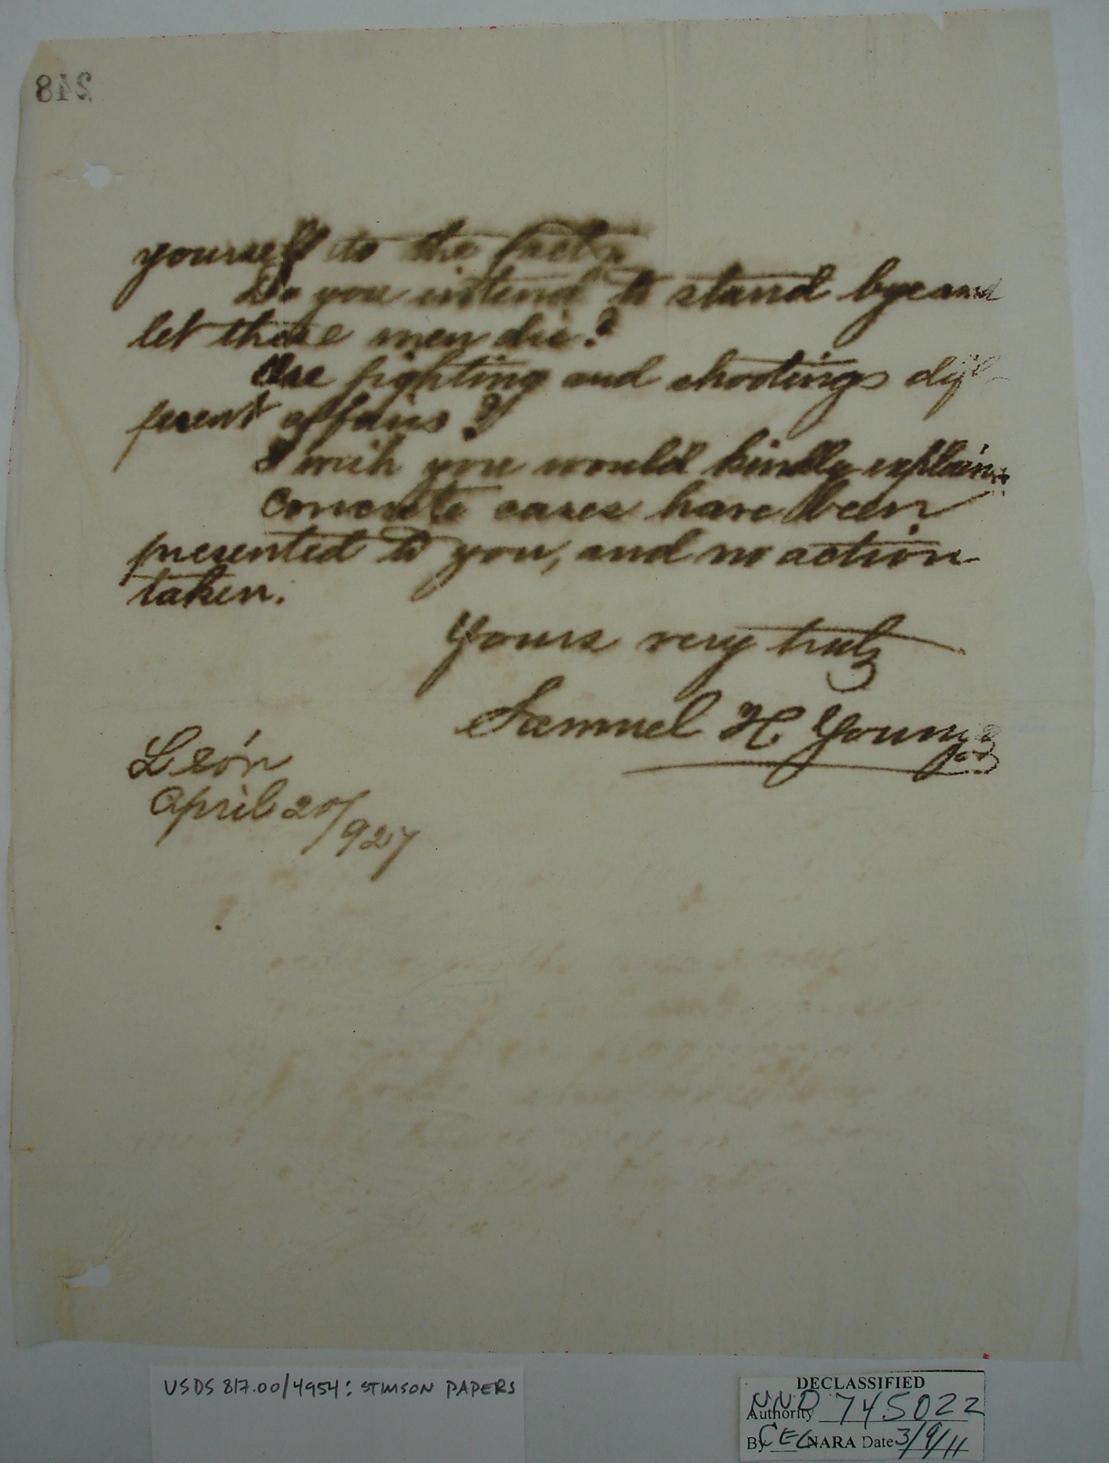 248
yourself to the facts.
Do you intend to stand bye and
let these men die?
Are fighting and shootings dif-
ferent affairs?
I wish you would kindly explain.
Concrete cases have been
presented to you, and no action
taken.
Yours very truly
Samuel H. Young
León
April 20/927
USDS 817.00/4954: STIMSON PAPERS
DECLASSIFIED
Authority NND 745022
By CEC NARA Date 3/9/11